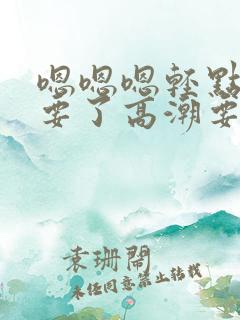 嗯嗯嗯轻點
要了高潮要
袁珊閤
未经同意禁止转载